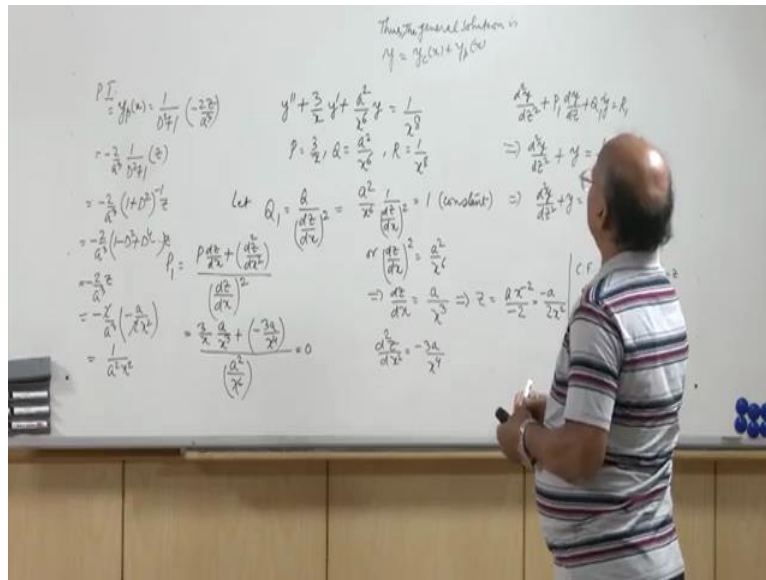 Thus the general solution is
y = y_c(x) + y_p(x)
P.I.
= y_p(x) = 1/(D²+1) (-2z/a³)
= -2/a³ 1/(D²+1) (z)
= -2/a³ (1+D²)^{-1} z
= -2/a³ (1-D²+D⁴--)z
= -2/a³ z
= -2/a³ (-a/2x²)
= 1/(a²x²)
y'' + 3/x y' + a²/x⁶ y = 1/x⁸
P = 3/x, Q = a²/x⁶, R = 1/x⁸
Let Q₁ = Q/(dz/dx)² = a²/x⁶ 1/(dz/dx)² = 1 (constant)
or (dz/dx)² = a²/x⁶
⇒ dz/dx = a/x³ ⇒ z = ax⁻²/-2 = -a/2x²
d²z/dx² = -3a/x⁴
P₁ = (P dz/dx + (d²z/dx²))/(dz/dx)²
= (3/x a/x³ + (-3a/x⁴))/(a²/x⁶) = 0
d²y/dz² + P₁ dy/dz + Q₁y = R₁
⇒ d²y/dz² + y =
⇒ d²y/dz² + y =
C.F
z